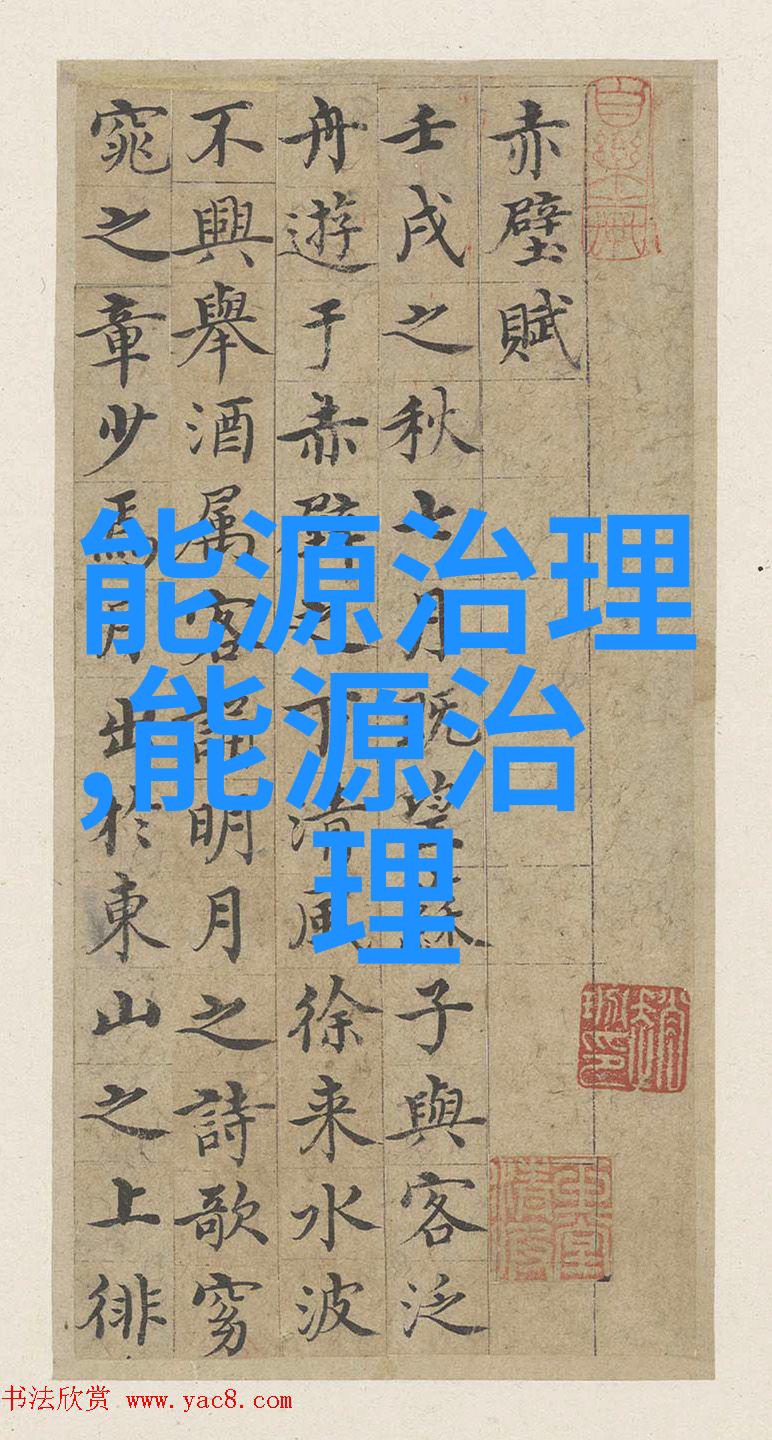 赤壁賦
壬戌之秋七月既望蘇子與客泛
舟遊于赤壁之下清風徐来水波
不興舉酒属客誦明月之詩歌窈
窕之章少焉月出於東山之上徘
能源治理
,能源治
理
书法欣赏 www.yac8.com